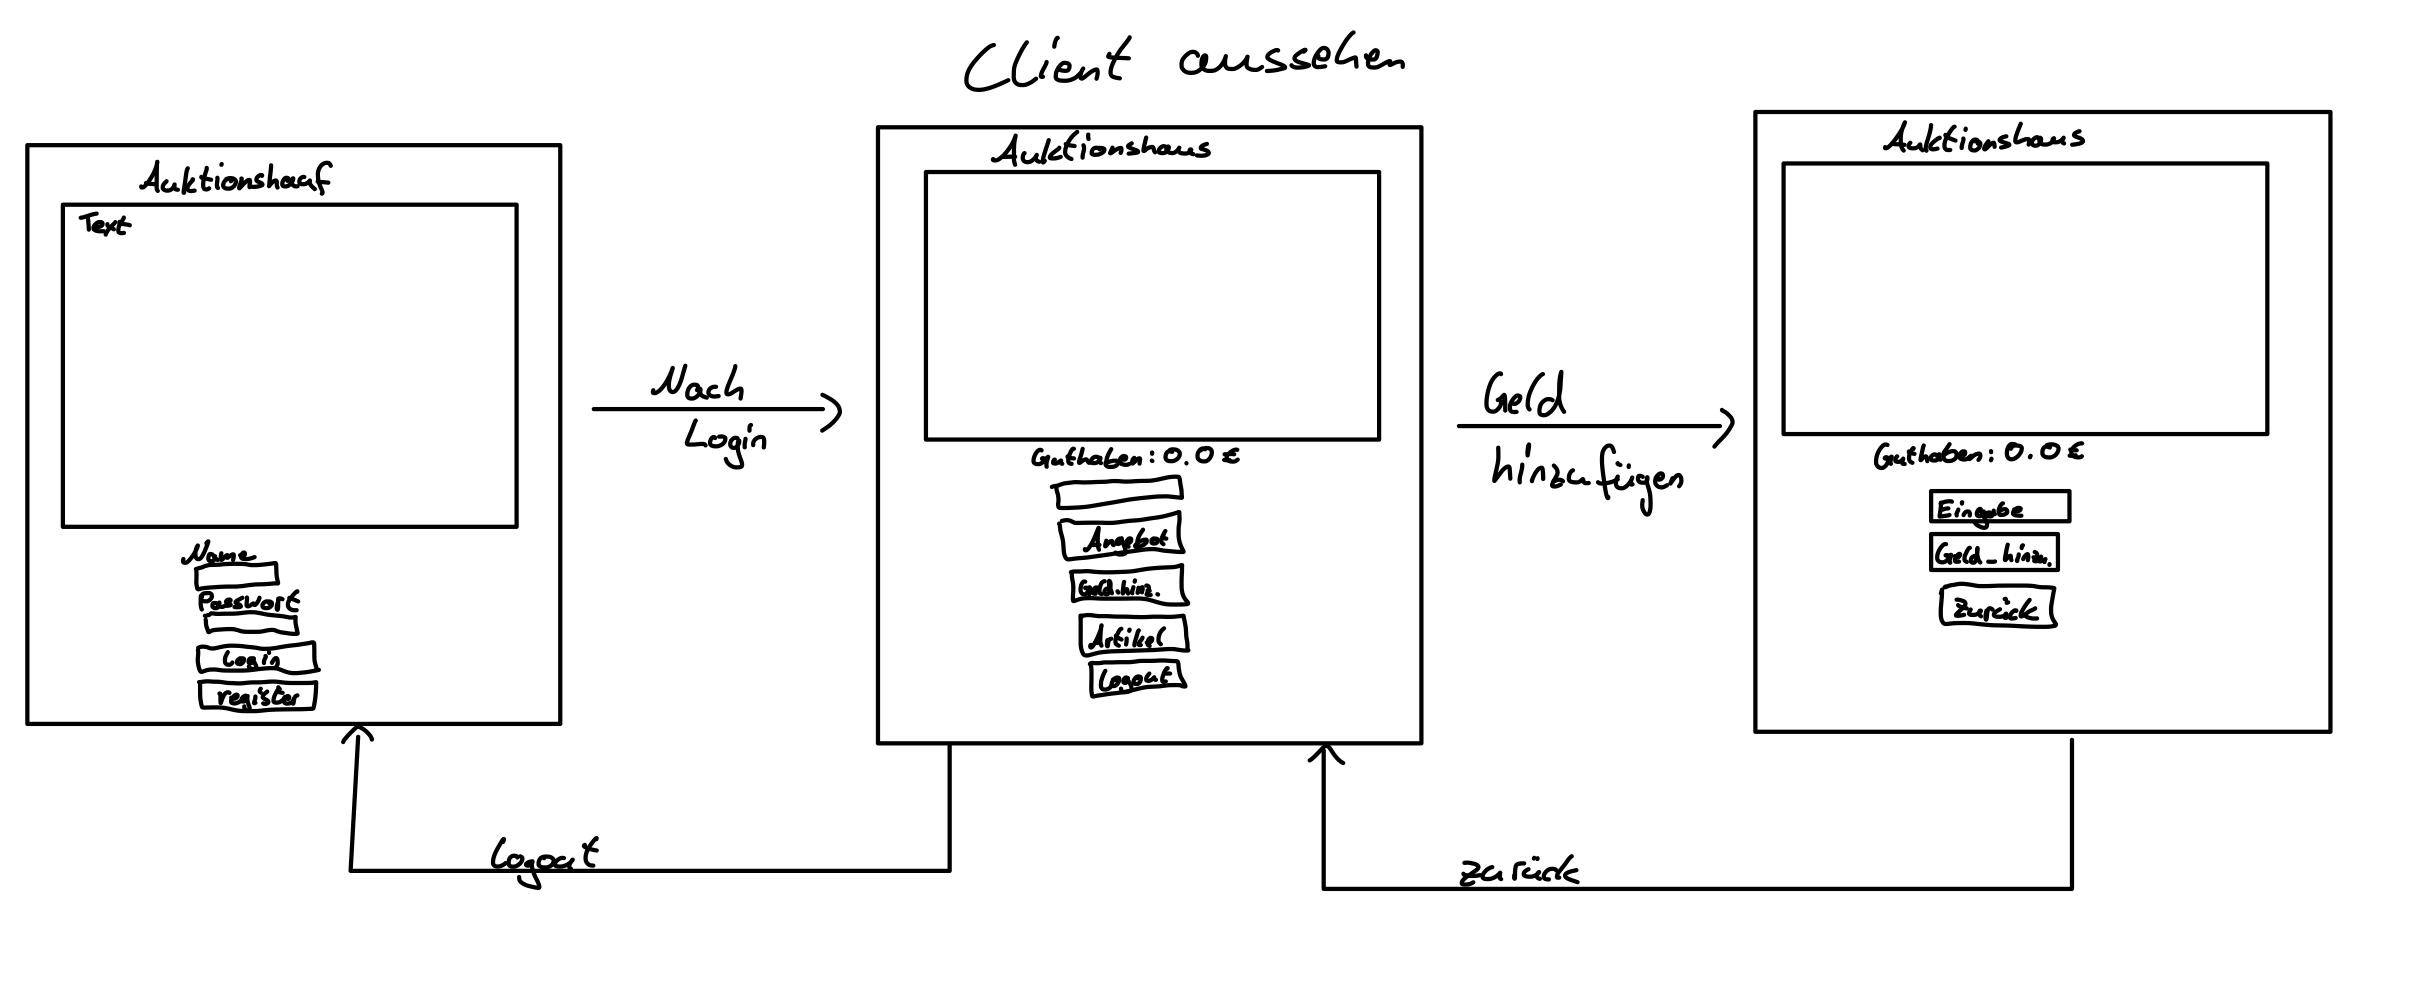 Client aussehen
Auktionshaaf
Text
Name
Passwort
Login
register
Nach
Login
Auktionshaus
Guthaben: 0.0 €
Angebot
Geld.hinz.
Artikel
Logout
Geld
hinzufügen
Auktionshaus
Guthaben: 0.0 €
Eingabe
Geld_hinzu.
zurück
Logout
zurück